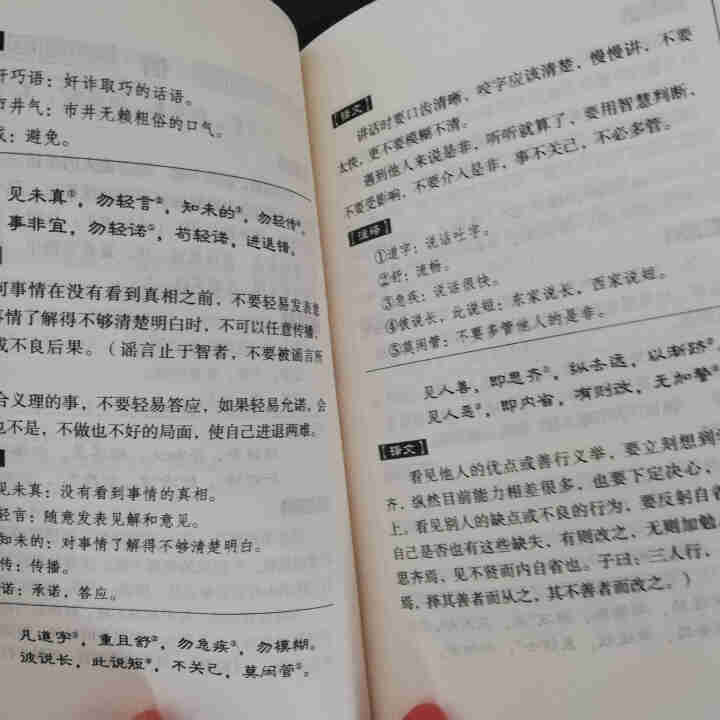 奸巧语：奸诈取巧的话语。
市井气：市井无赖粗俗的口气。
戒：避免。
见未真①，勿轻言②，知未的③，勿轻传④。
事非宜，勿轻诺⑤，苟轻诺，进退错。
何事情在没有看到真相之前，不要轻易发表意
事情了解得不够清楚明白时，不可以任意传播，
成不良后果。（谣言止于智者，不要被谣言所
合义理的事，不要轻易答应，如果轻易允诺，会
也不是，不做也不好的局面，使自己进退两难。
见未真：没有看到事情的真相。
轻言：随意发表见解和意见。
知未的：对事情了解得不够清楚明白。
传：传播。
诺：承诺，答应。
凡道字①，重且舒②，勿急疾③，勿模糊。
彼说长，此说短④，不关己，莫闲管⑤。
【译文】
讲话时要口齿清晰，咬字应该清楚，慢慢讲，不要
太快，更不要模糊不清。
遇到他人来说是非，听听就算了，要用智慧判断，
不要受影响，不要介入是非，事不关己，不必多管。
【注释】
①道字：说话吐字。
②舒：流畅。
③急疾：说话很快。
④彼说长，此说短：东家说长，西家说短。
⑤莫闲管：不要多管他人的是非。
见人善，即思齐①，纵去远，以渐跻②。
见人恶③，即内省，有则改，无加警
【译文】
看见他人的优点或善行义举，要立刻想到
齐，纵然目前能力相差很多，也要下定决心，
上。看见别人的缺点或不良的行为，要反躬自省
自己是否也有这些缺失，有则改之，无则加勉
思齐焉，见不贤而内自省也。子曰：三人行，
焉，择其善者而从之，其不善者而改之。）